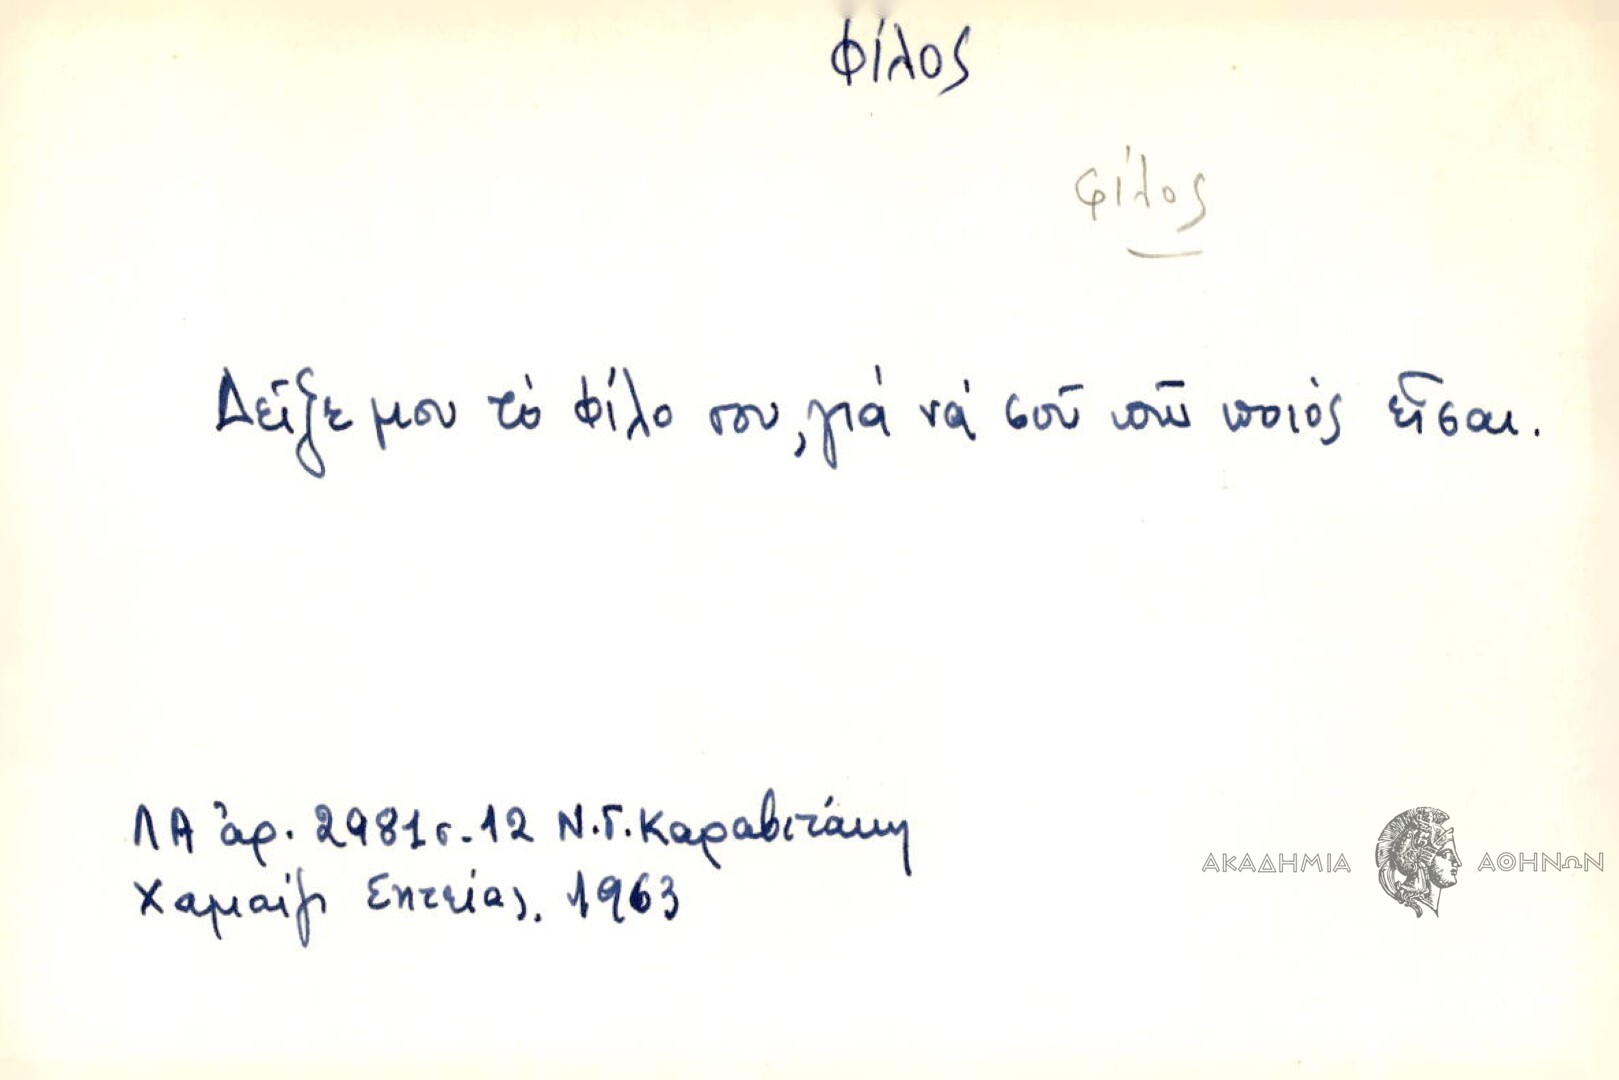 φίλος
φίλος
Δεῖξε μου τὸ φίλο σου, γιά νά σοῦ πῶ ποιὸς εἶσαι.
ΛΑ ἀρ. 2981 σ. 12 Ν. Γ. Καραβιτάκη
Χαμαίζι Σητείας, 1963
ΑΚΑΔΗΜΙΑ ΑΘΗΝΩΝ